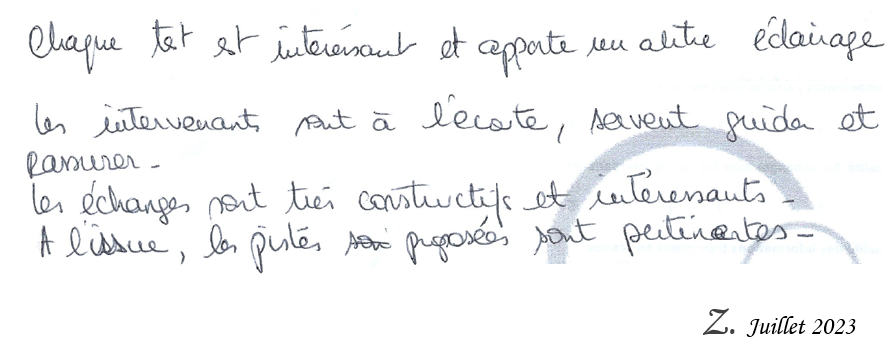 Chaque test est intéressant et apporte un autre éclairage
Les intervenants sont à l'écoute, savent guider et
rassurer -
Les échanges sont très constructifs et intéressants -
A l'issue, les pistes son proposées sont pertinentes -
Z. Juillet 2023